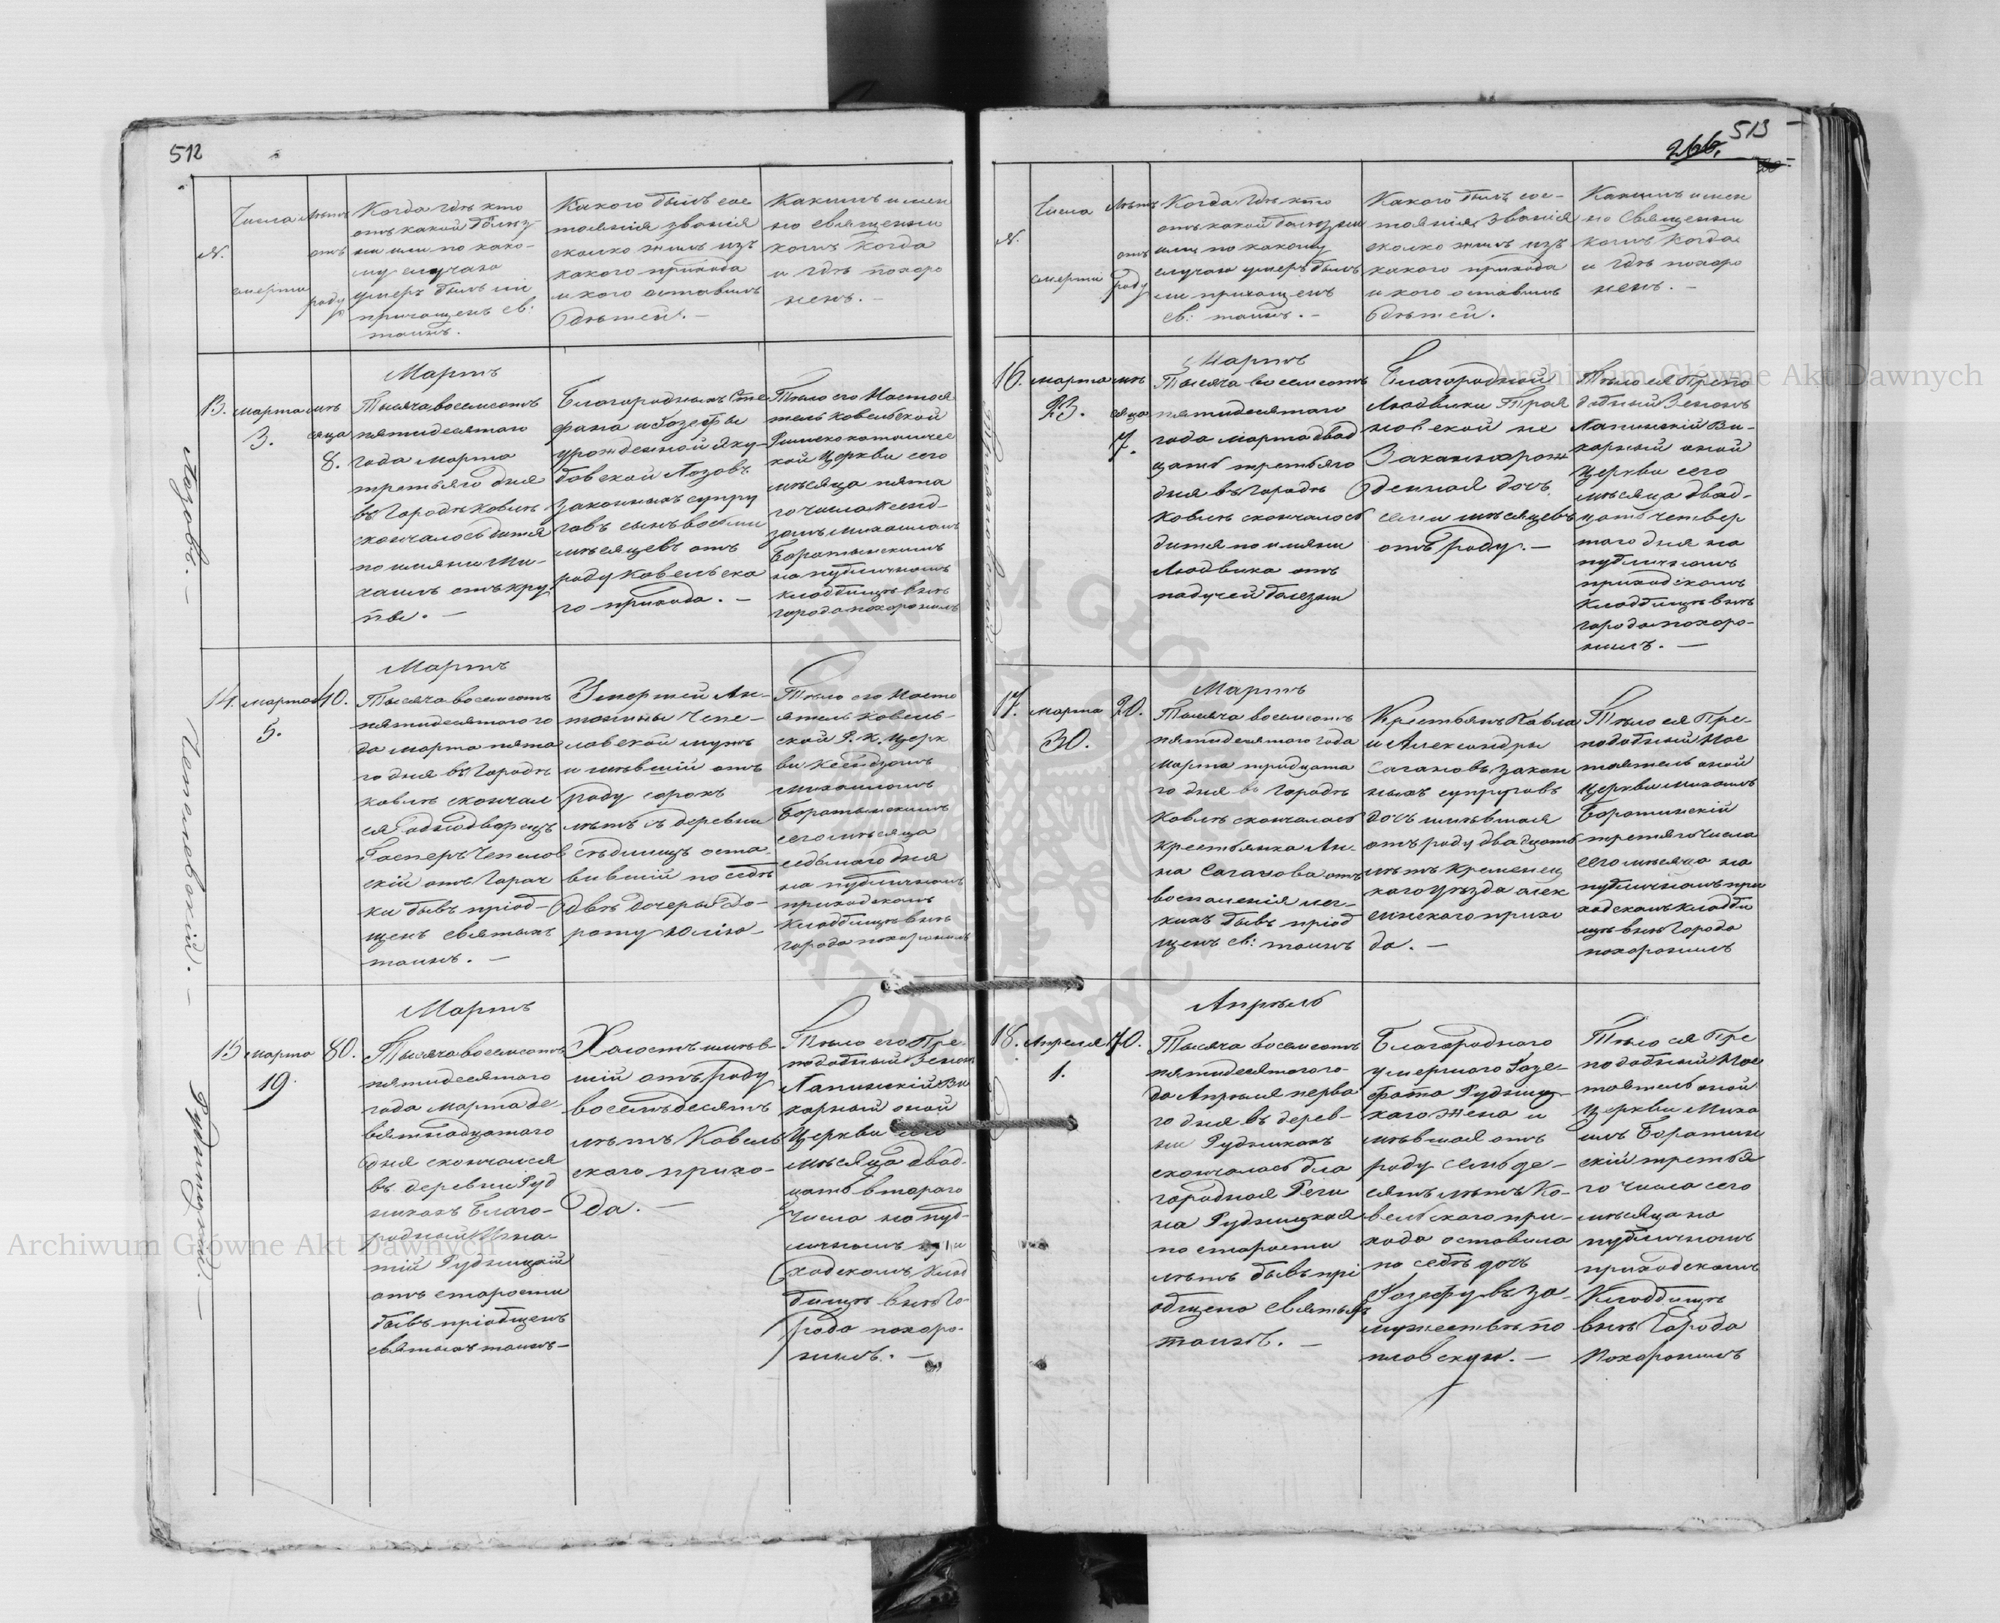 512
N.
Числа
смерти
Лѣтъ
отъ
роду
Когда гдѣ кто
отъ какой болѣз
ни или по како-
му случаю
умеръ былъ ли
причащенъ св:
таинъ.
Какого былъ сос
тоянія званія
сколко жилъ изъ
какого прихода
и кого оставилъ
дѣтей. —
Какимъ имен
но священни
комъ когда
и гдѣ похоро
ненъ. —
Лозовъ. —
13.
марта
3.
мѣ
сяца
8.
Мартъ
Тысяча восемсотъ
пятидесятого
года марта
третьяго дня
въ Городѣ Ковлѣ
скончалось дитя
по имяни Ми-
хаилъ отъ кру
пы. —
Благородныхъ Сте
фана и Іозефы
урожденной Яку-
бовской Лозовъ
законныхъ супру
говъ сынъ восьми
мѣсяцевъ отъ
роду Ковельска
го прихода. —
Тѣло его Настоя
тель Ковельской
Римско католичес
кой Церкви сего
мѣсяца пята
го числа Ксенд-
зомъ Михаиломъ
Боратынскимъ
на публичномъ
кладбищѣ внѣ
города похоронилъ
Чепеловскій. —
14.
марта
5.
40.
Мартъ
Тысяча восемсотъ
пятидесятого го
да марта пята
го дня въ Городѣ
Ковлѣ скончал
ся однодворецъ
Гасперъ Чепелов
скій отъ Горач
ки бывъ пріоб-
щенъ святыхъ
таинъ. —
Умершей Ан-
тонины Чепе-
ловской мужъ
имѣвшій отъ
роду сорокъ
лѣтъ съ деревни
оста-
вившій по себѣ
двѣ дочеры До-
роту Юлію —
Тѣло его Насто
ятель Ковель-
ской Р. К. Церк
ви Ксендзомъ
Михаиломъ
Боратынскимъ
сего мѣсяца
седьмого дня
на публичномъ
приходскомъ
Кладбищѣ внѣ
города похоронилъ
Рудницкій. —
15
марта
19.
80.
Мартъ
Тысяча восемсотъ
пятидесятого
года Марта де-
вятнадцатого
дня скончался
въ деревни Руд
никахъ Благо-
родный Игна-
тій Рудницкій
отъ старости
бывъ пріобщенъ
святыхъ таинъ —
Холостъ имѣв-
шій отъ роду
восемьдесятъ
лѣтъ Ковель
ского прихо-
да. —
Тѣло его Пре
подобный Зенонъ
Лапинскій Ви
карный оной
Церкви сего
мѣсяца двад-
цать второго
числа на пуб-
личномъ при
ходскомъ Клад
бищѣ внѣ Го-
рода похоро-
нилъ. —
513
266.
N.
Числа
смерти
Лѣтъ
отъ
роду
Когда гдѣ кто
отъ какой болѣзни
или по какому
случаю умеръ былъ
ли причащенъ
св: таинъ. —
Какого былъ сос-
тоянія званія
сколко жилъ изъ
какого прихода
и кого оставилъ
дѣтей.
Какимъ имен
но Священни
комъ когда
и гдѣ похоро
ненъ. —
16.
марта
23.
мѣ
сяца
7.
Мартъ
Тысяча восемсотъ
пятидесятого
года марта двад
цать третьяго
дня въ Городѣ
Ковлѣ скончалось
дитя по имяни
Людвика отъ
падучей болезни
Благородной
Людвики
не
Законнорож
денная дочь
семи мѣсяцевъ
отъ роду. —
Тѣло ея Препо
добный Зенонъ
Лапинскій Ви-
карный оной
Церкви сего
мѣсяца двад-
цать четвер
того дня на
публичномъ
приходскомъ
Кладбищѣ внѣ
города похоро-
нилъ. —
17.
марта
30.
20.
Мартъ
Тысяча восемсотъ
пятидесятого года
Марта тридцата
го дня въ Городѣ
Ковлѣ скончалась
крестьянка Ан-
на Саганова отъ
воспаленія лег-
кихъ бывъ пріоб
щенъ св: таинъ
Крестьянъ Павла
и Александры
Сагановъ закон
ныхъ супруговъ
дочъ имѣвшая
отъ роду двадцать
лѣтъ Кременец
каго уѣзда алек
синского прихо
да. —
Тѣло ея Пре-
подобный Нас
тоятель оной
Церкви Михаилъ
Боратинскій
третяго числа
сего мѣсяца на
публичномъ при
ходскомъ кладби
щѣ внѣ Города
похоронилъ
18.
Апреля
1.
70.
Апрѣль
Тысяча восемсотъ
пятидесятого го-
да Апреля перво
го дня въ дерев-
ни Рудникахъ
скончалась бла
городная Реги
на Рудницкая
по старости
лѣтъ бывъ прі
общена Святыхъ
таинъ. —
Благородного
умершого Іозе-
фата Рудниц-
каго жена и
мѣвшая отъ
роду семде-
сятъ лѣтъ Ко-
вельского при-
хода оставила
по себѣ дочъ
Іозефу въ за-
мужествѣ По
пловскую. —
Тѣло ея Пре
подобный Нас
тоятель оной
Церкви Миха
илъ Боратин
скій третья
го числа сего
мѣсяца на
публичномъ
приходскомъ
Кладбищѣ
внѣ Города
похоронилъ
Archiwum Główne Akt Dawnych
Archiwum Główne Akt Dawnych